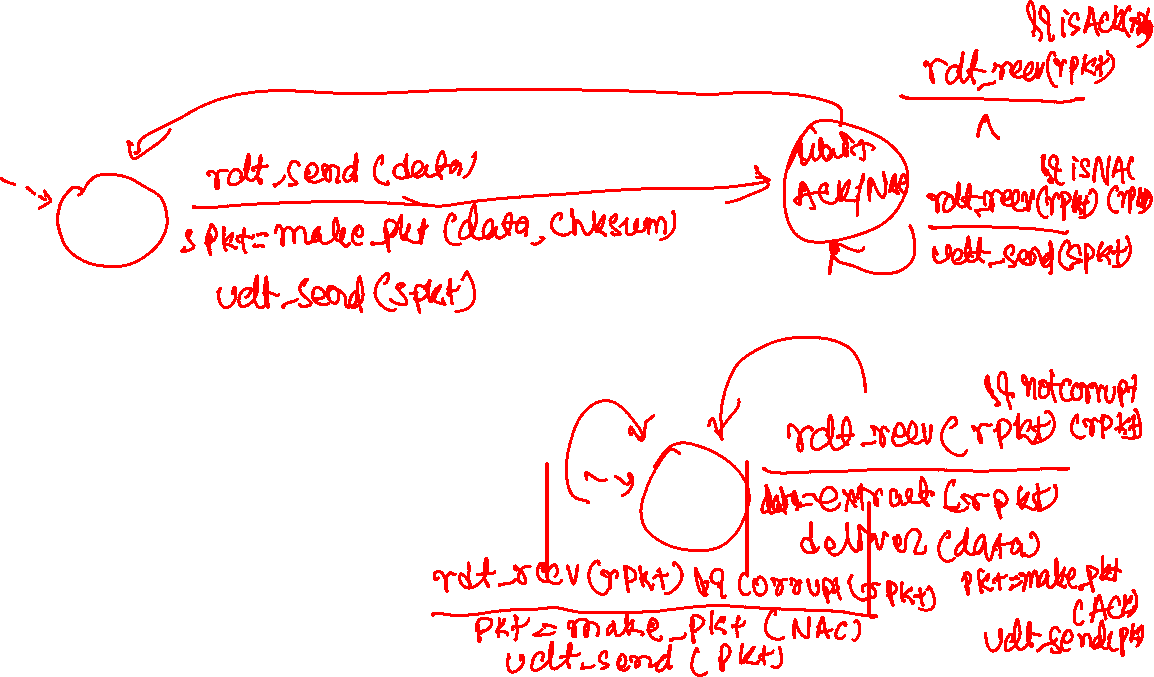 && isAck(rpkt)
rdt_rcev(rpkt)
Λ
rdt_send (data)
spkt=make_pkt (data, chksum)
udt_send (spkt)
Wait
ACK/NAC
&& isNAC
rdt_rcev(rpkt) (rpkt)
udt_send(spkt)
&& notcorrupt
rdt_rcev(rpkt) (rpkt)
data=extract(rpkt)
deliver (data)
pkt=make_pkt
(ACK)
udt_send(pkt)
rdt_rcev(rpkt) && corrupt(rpkt)
pkt = make_pkt (NAC)
udt_send (pkt)